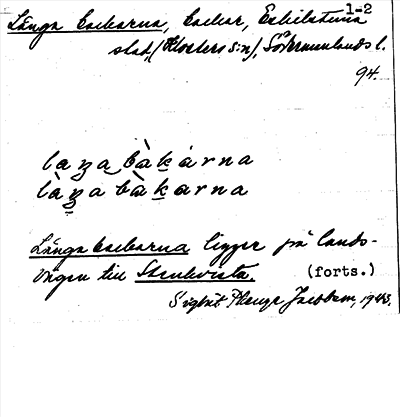 1-2
Långa backarna, backar, Eskilstuna
stad, (Klosters s:n), Södermanlands l.
94.
laŋa bàkarna
làŋa bàkarna
Långa backarna ligger på lands-
vägen till Stenkvista.
(forts.)
Sigbrit Plænge Jacobson, 1943.